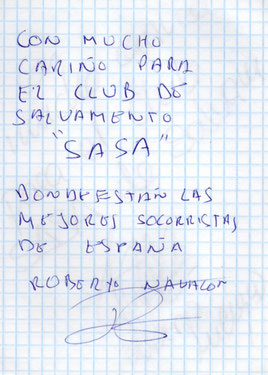 CON MUCHO
CARIÑO PARA
EL CLUB DE
SALVAMENTO
"SASA"
DONDE ESTÁN LAS
MEJORES SOCORRISTAS
DE ESPAÑA
ROBERTO